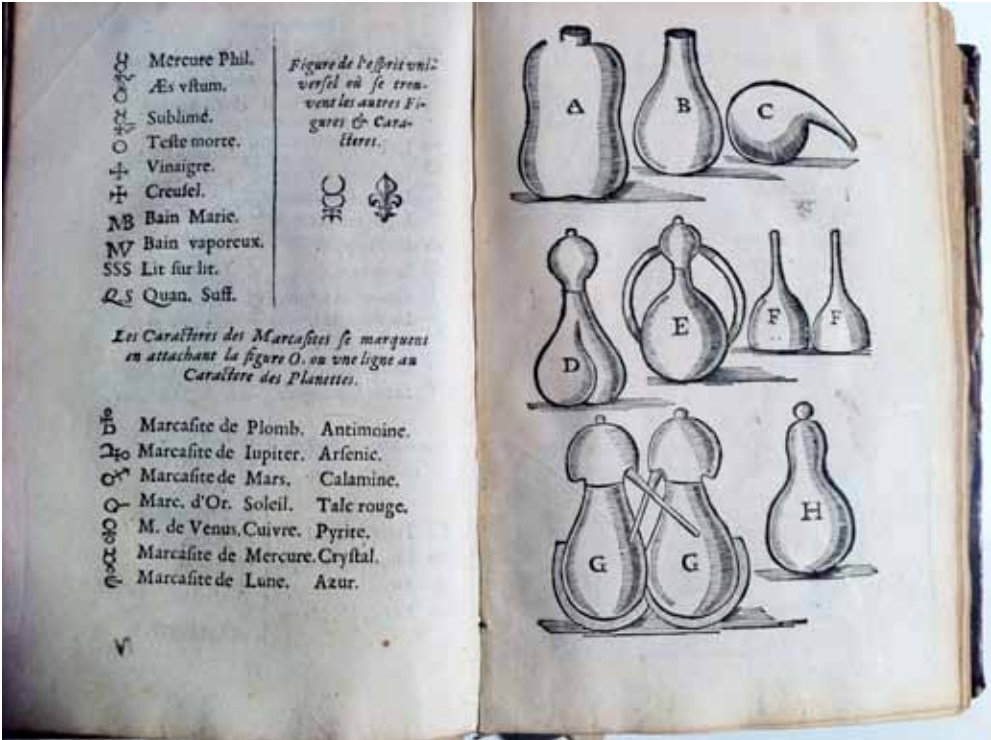 Mercure Phil.
Æs vſtum.
Sublimé.
Teſte morte.
Vinaigre.
Creuſel.
MB Bain Marie.
MV Bain vaporeux.
SSS Lit ſur lit.
QS Quan. Suff.
Figure de l'eſprit vni-
verſel où ſe trou-
vent les autres Fi-
gures & Cara-
cteres.
Les Caracteres des Marcaſites ſe marquent
en attachant la figure O. ou vne ligne au
Caractere des Planettes.
Marcaſite de Plomb. Antimoine.
Marcaſite de Iupiter. Arſenic.
Marcaſite de Mars. Calamine.
Marc. d'Or. Soleil. Talc rouge.
M. de Venus. Cuivre. Pyrite.
Marcaſite de Mercure. Cryſtal.
Marcaſite de Lune. Azur.
A B C
D E F F
G G H